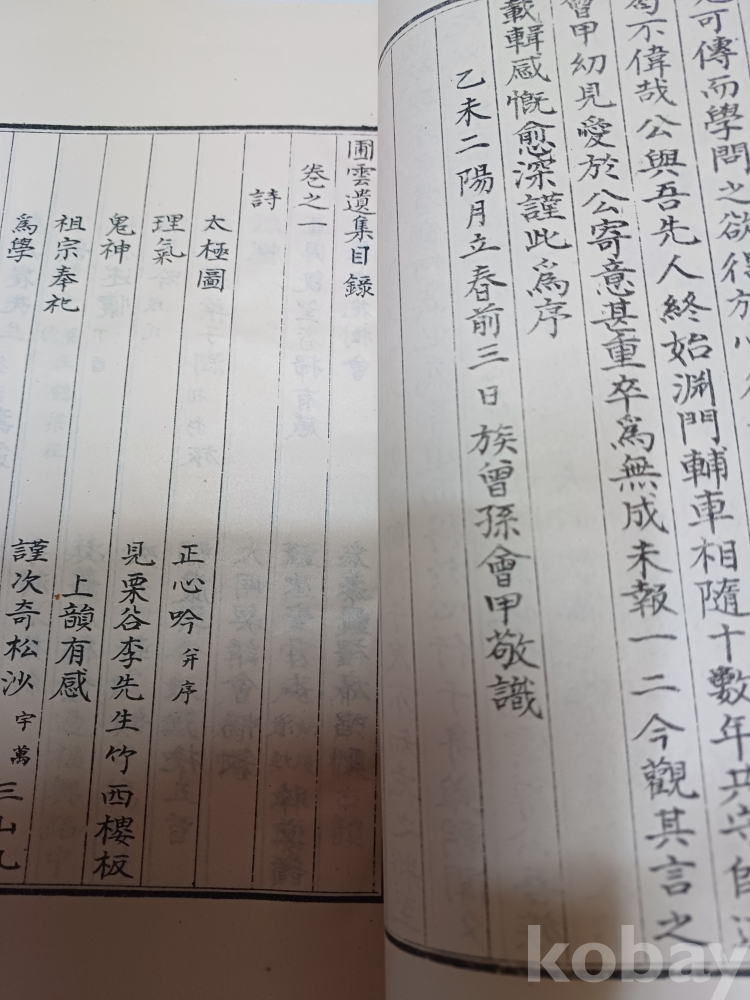 可傳而學問之欲得放心
不偉哉公與吾先人終始淵門輔車相隨十數年共守師
曾甲幼見愛於公寄意甚重卒爲無成未報一二今觀其言之
載輯感慨愈深謹此爲序
乙未二陽月立春前三日族曾孫會甲敬識
圃雲遺集目錄
卷之一
詩
太極圖
理氣 正心吟 幷序
鬼神 見栗谷李先生竹西樓板
祖宗奉祀 上韻有感
爲學 謹次奇松沙 宇萬 三山九
kobay